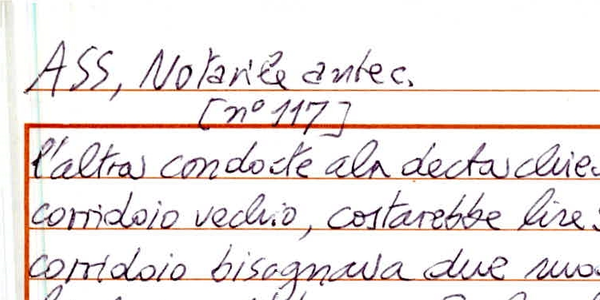 ASS, Notarile antec.
[nº 117]
l'altra condocte ala decta chies
corridoio vechio, costarebbe lire
corridoio bisognava due